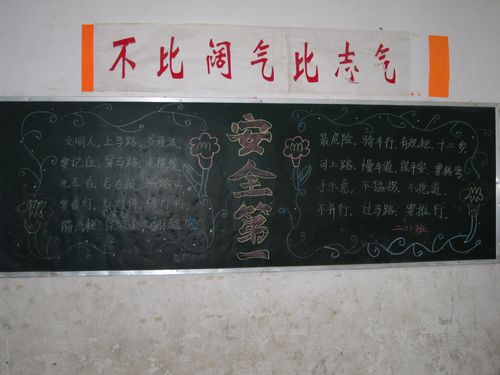 不比阔气比志气
安全第一
文明人，上马路，交通法，
要记住，穿马路，走横线，
先左看，后右顾，
要看灯，红灯停，绿灯行
最危险，骑车行，有规矩，十二岁
可上路，慢车道，保平安，要转弯
手示意，不猛拐，不抢道，
不并行，过马路，要推行。
班